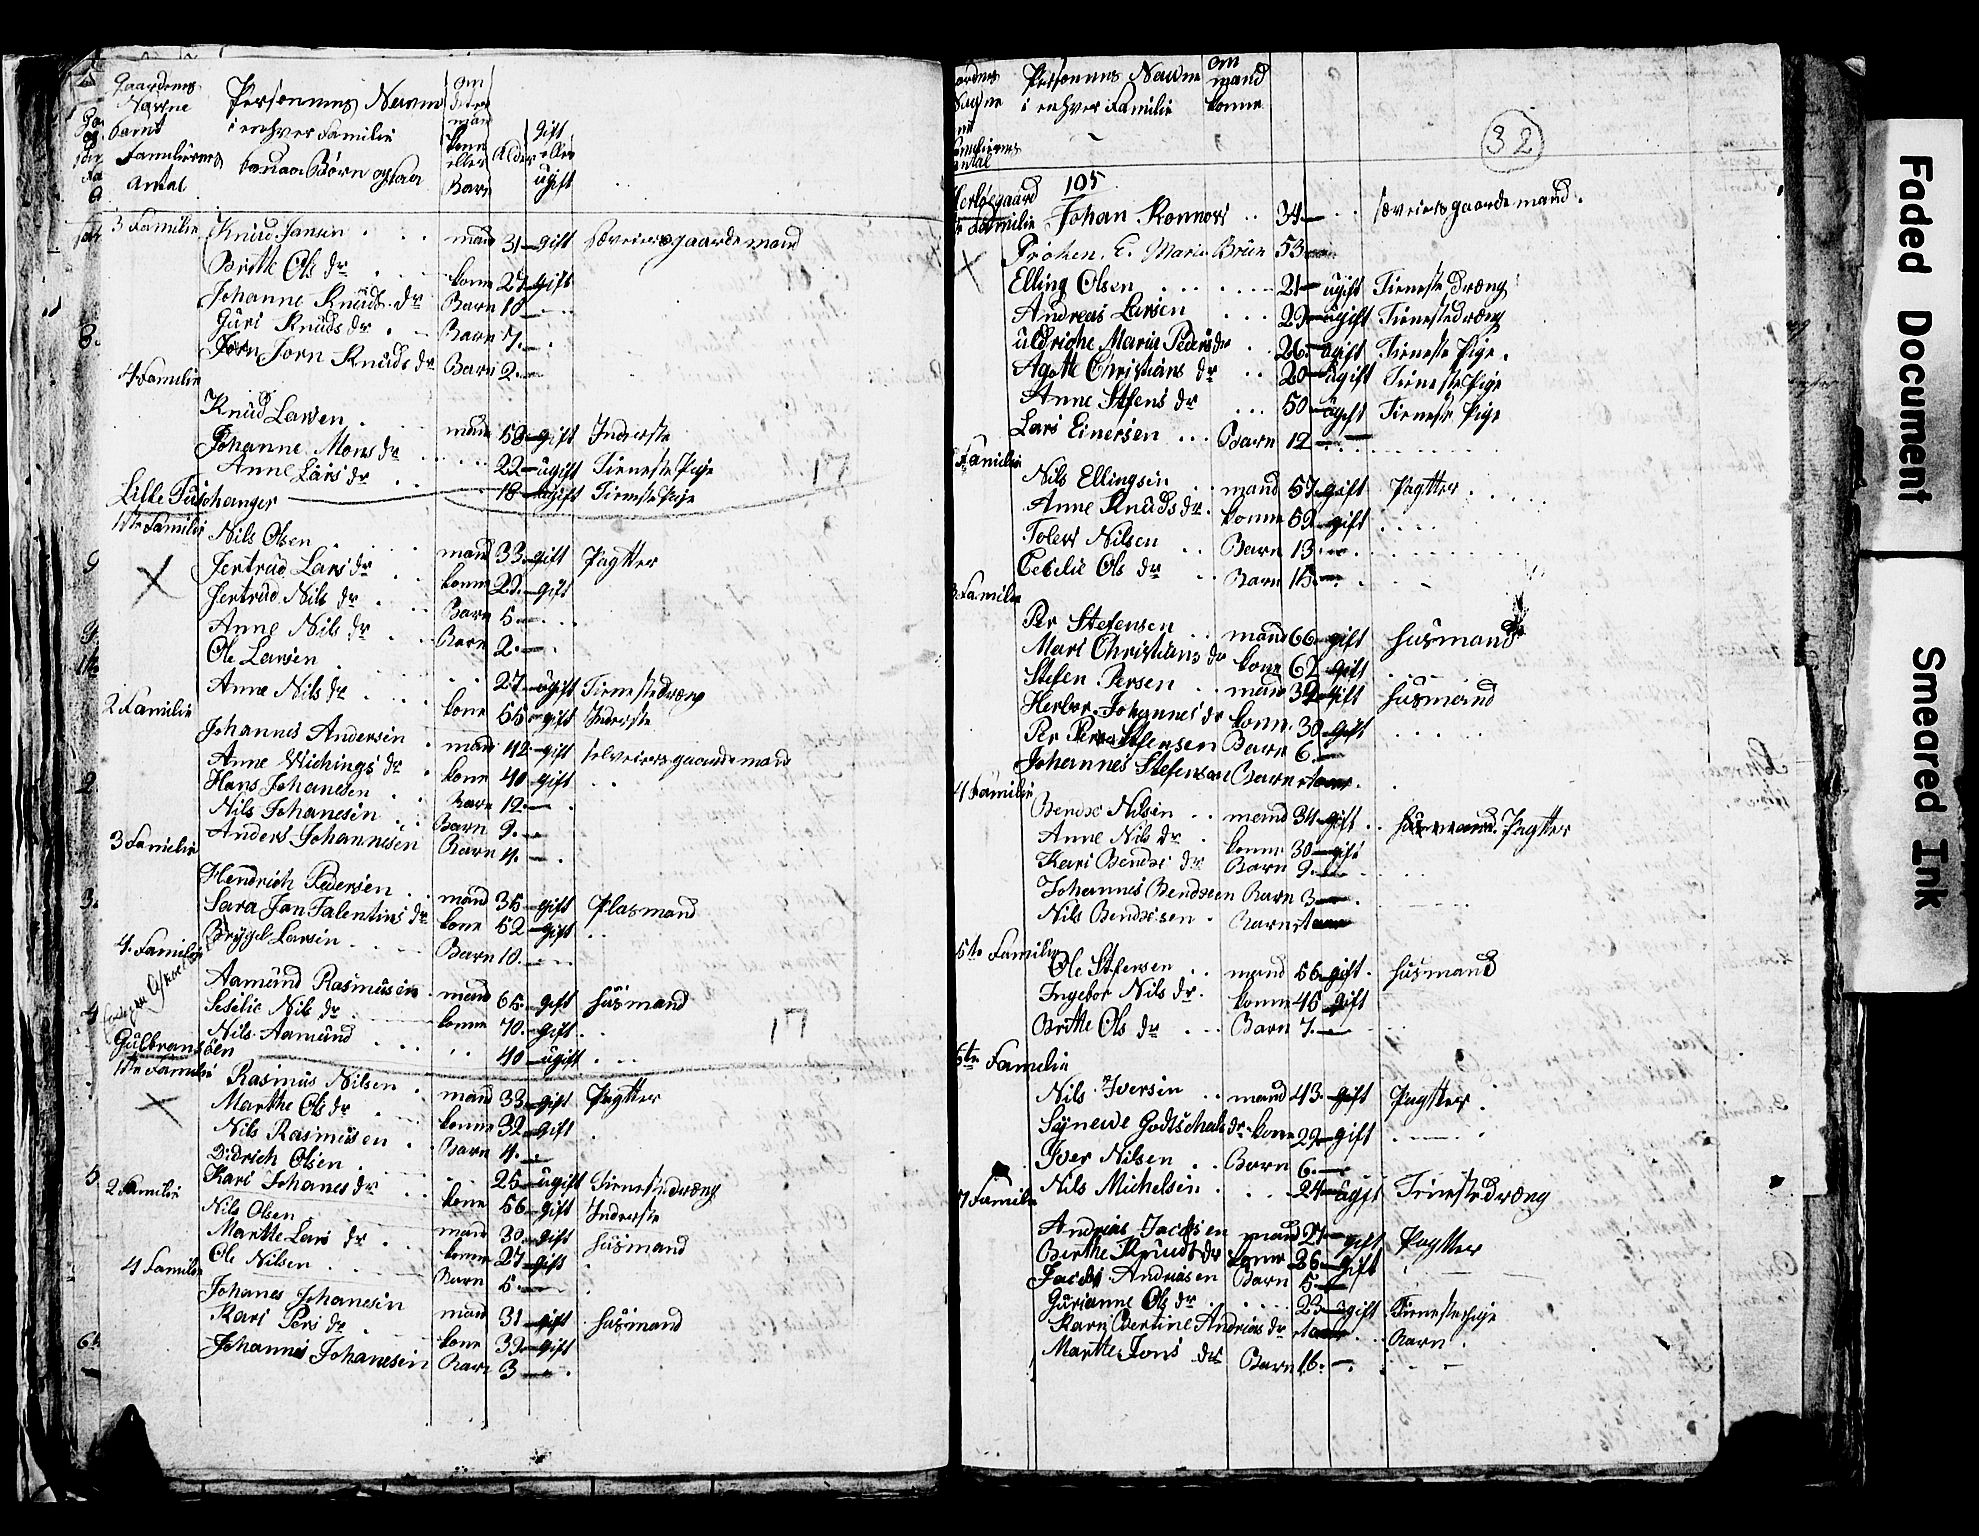 Gaardenes Nafne samt Familiernes Antal
Personnenes Nafne i enhver Familie
om mand konn eller Barn
Alder
gift eller ugift
3 Familie
Knud Jansen mand 31 gift
Britte Ols dr konn 27 gift
Johanne Knuds dr Barn 10
Guri Knuds dr Barn 7
Jorn Knuds dr Barn 2
4 Familie
Knud Larsen mand 58 gift Inderste
Johanne Mons dr 22 ugift Tieneste Pige
Anne Lars dr 18 ugift Tieneste Pige
17
Lille
1te Familie
Nils Olsen mand 33 gift Pagtter
Jertrud Lars dr konn 29 gift
Jertrud Nils dr Barn 5
Anne Nils dr Barn 2
Ole Larsen 27 ugift Tienestedræng
Anne Nils dr konn 55 gift Inderste
2 Familie
Johannes Andersen mand 42 gift selveiersgaardemand
Anne Wichings dr konn 40 gift
Hans Johanesen Barn 12
Nils Johanesen Barn 9
Anders Johannesen Barn 4
3 Familie
Hendrich Pedersen mand 36 gift Plasmand
Sara Jan Falentins dr konn 52 gift
Brygel Larsen Barn 10
4 Familie
Aamund Rasmusen mand 65 gift husmand
Seselie Nils dr konn 70 gift
Nils Aamund 40 ugift
17
Gulbransøen
1te Familie
Rasmus Nilsen mand 33 gift Pagtter
Marthe Ols dr konn 32 gift
Nils Rasmusen Barn 4
Didrich Olsen 25 ugift Tienestedræng
Kari Johanes dr konn 56 gift Inderste
2 Familie
Nils Olsen mand 30 gift husmand
Marthe Lars dr konn 27 gift
Ole Nilsen Barn 5
4 Familie
Johanes Johanesen mand 31 gift husmand
Kari Pers dr konn 39 gift
Johannes Johanesen Barn 3
Personnenes Nafne i enhver Familie
om mand konne
32
105
Familie
Johan Konnow 34 gaardemand
Frøken E. Maria Brun 53
Elling Olsen 21 ugift Tieneste dræng
Andreas Larsen 29 ugift Tienestedræng
Uldriche Maria Peders dr 26 ugift Tieneste Pige
Agotte Christians dr 20 ugift Tieneste Pige
Anne Stefens dr 50 ugift Tieneste Pige
Lars Einersen Barn 12
Familie
Nils Ellingsen mand 57 gift Pagtter
Anne Knuds dr konne 52 gift
Tolew Nilsen Barn 13
Cecelie Ols dr Barn 15
3 Familie
Per Stefensen mand 66 gift husmand
Mari Christians dr kone 62 gift
Stefen Persen mand 39 gift husmand
Herbor Johannes dr konne 30 gift
Per Stefensen Barn 6
Johannes Stefensen Barn 1 aar
4 Familie
Bendix Nilsen mand 34 gift Pagtter
Anne Nils dr konne 30 gift
Kari Bendix dr Barn 9
Johannes Bendxen Barn 3
Nils Bendxsen Barn 1 aar
5te Familie
Ole Stefensen mand 56 gift husmand
Ingebor Nils dr konne 45 gift
Britte Ols dr Barn 7
6te Familie
Nils Iversen mand 43 gift Pagtter
Synewe Godtschalks dr konn 29 gift
Iver Nilsen Barn 6
Nils Michelsen 24 ugift Tienestedræng
7 Familie
Andrias Jacobsen mand 27 gift Pagtter
Birthe Knuds dr konne 26 gift
Jacob Andriasen Barn 5
Gurianne Ols dr 23 ugift Tienestepige
Karn Bertine Andrias dr 1 aar Barn
Marthe Jons dr Barn 16
Faded Document
Smeared Ink